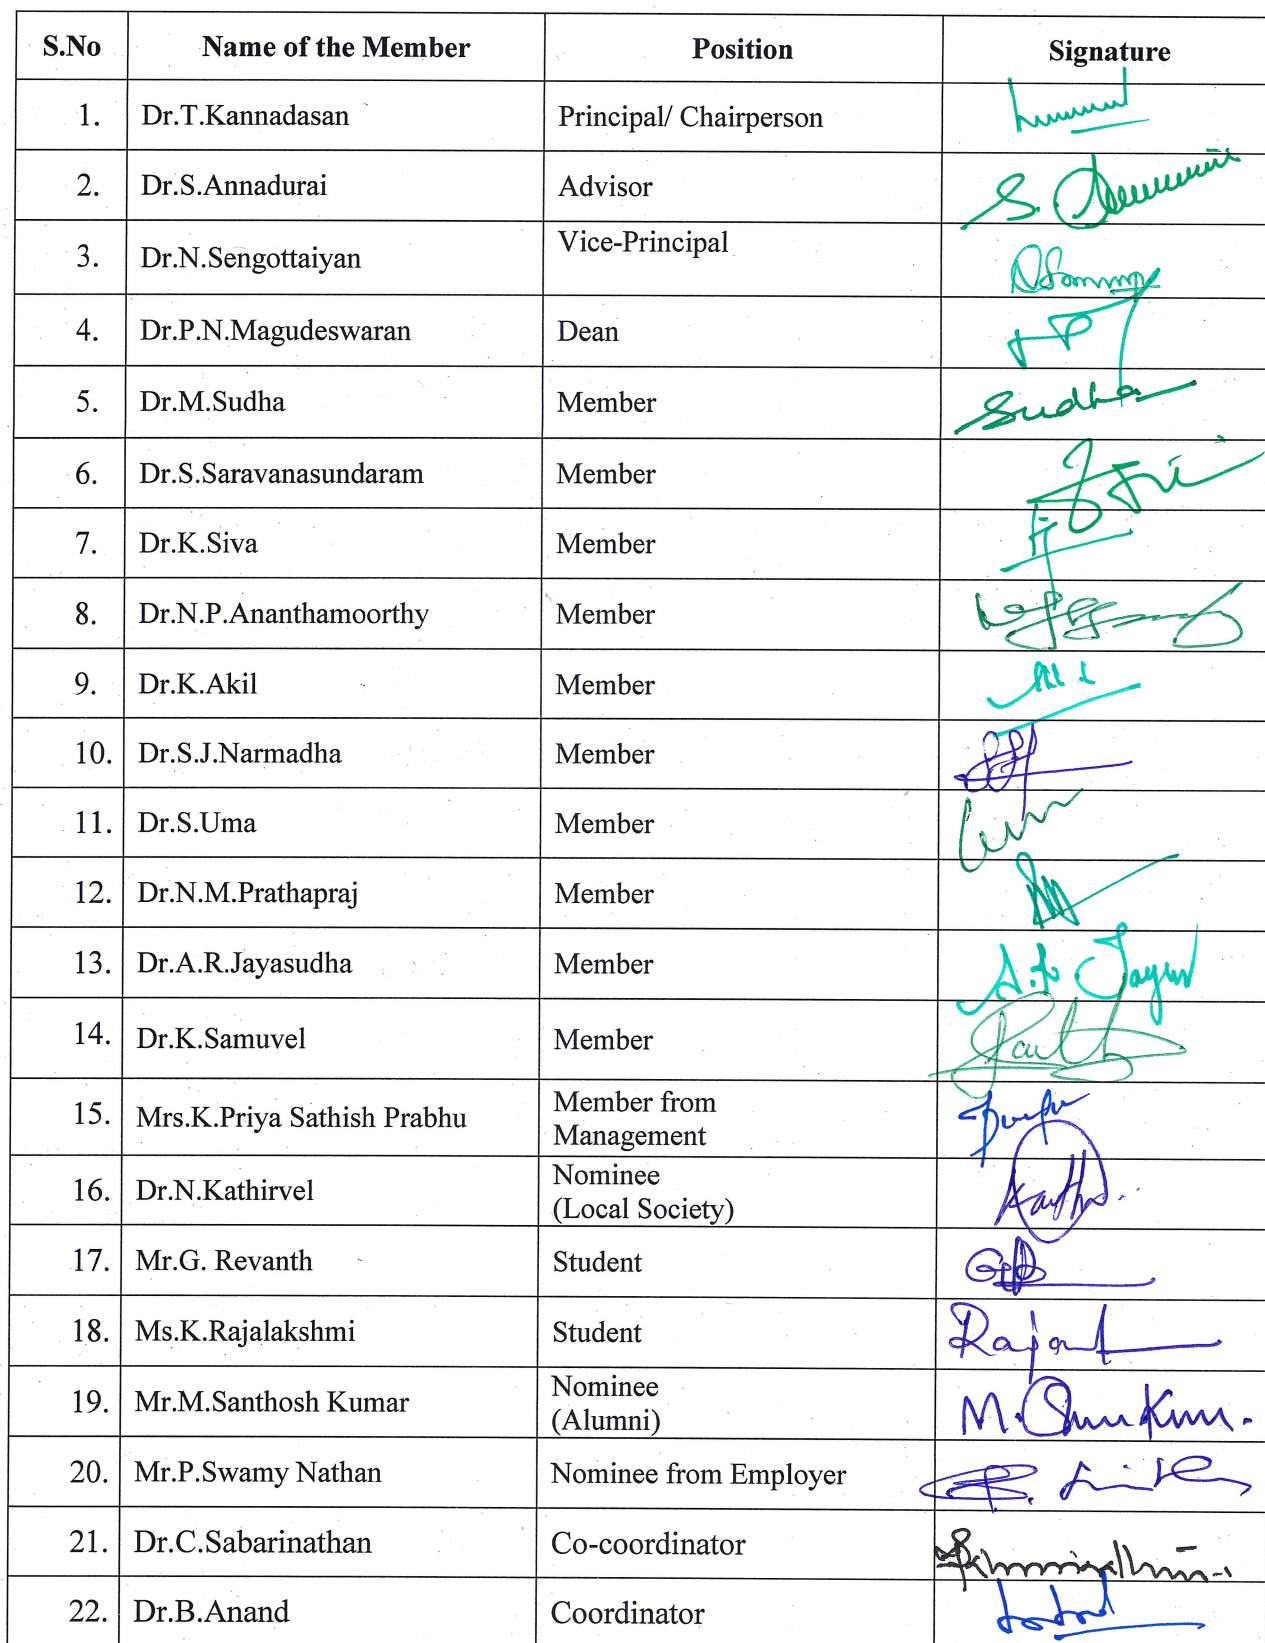 S.No Name of the Member Position Signature
1. Dr.T.Kannadasan Principal/ Chairperson
2. Dr.S.Annadurai Advisor S.
3. Dr.N.Sengottaiyan Vice-Principal
4. Dr.P.N.Magudeswaran Dean
5. Dr.M.Sudha Member Sudha
6. Dr.S.Saravanasundaram Member
7. Dr.K.Siva Member
8. Dr.N.P.Ananthamoorthy Member
9. Dr.K.Akil Member
10. Dr.S.J.Narmadha Member
11. Dr.S.Uma Member
12. Dr.N.M.Prathapraj Member
13. Dr.A.R.Jayasudha Member
14. Dr.K.Samuvel Member
15. Mrs.K.Priya Sathish Prabhu Member from
Management
16. Dr.N.Kathirvel Nominee
(Local Society)
17. Mr.G. Revanth Student
18. Ms.K.Rajalakshmi Student
19. Mr.M.Santhosh Kumar Nominee
(Alumni) M.
20. Mr.P.Swamy Nathan Nominee from Employer
21. Dr.C.Sabarinathan Co-coordinator
22. Dr.B.Anand Coordinator